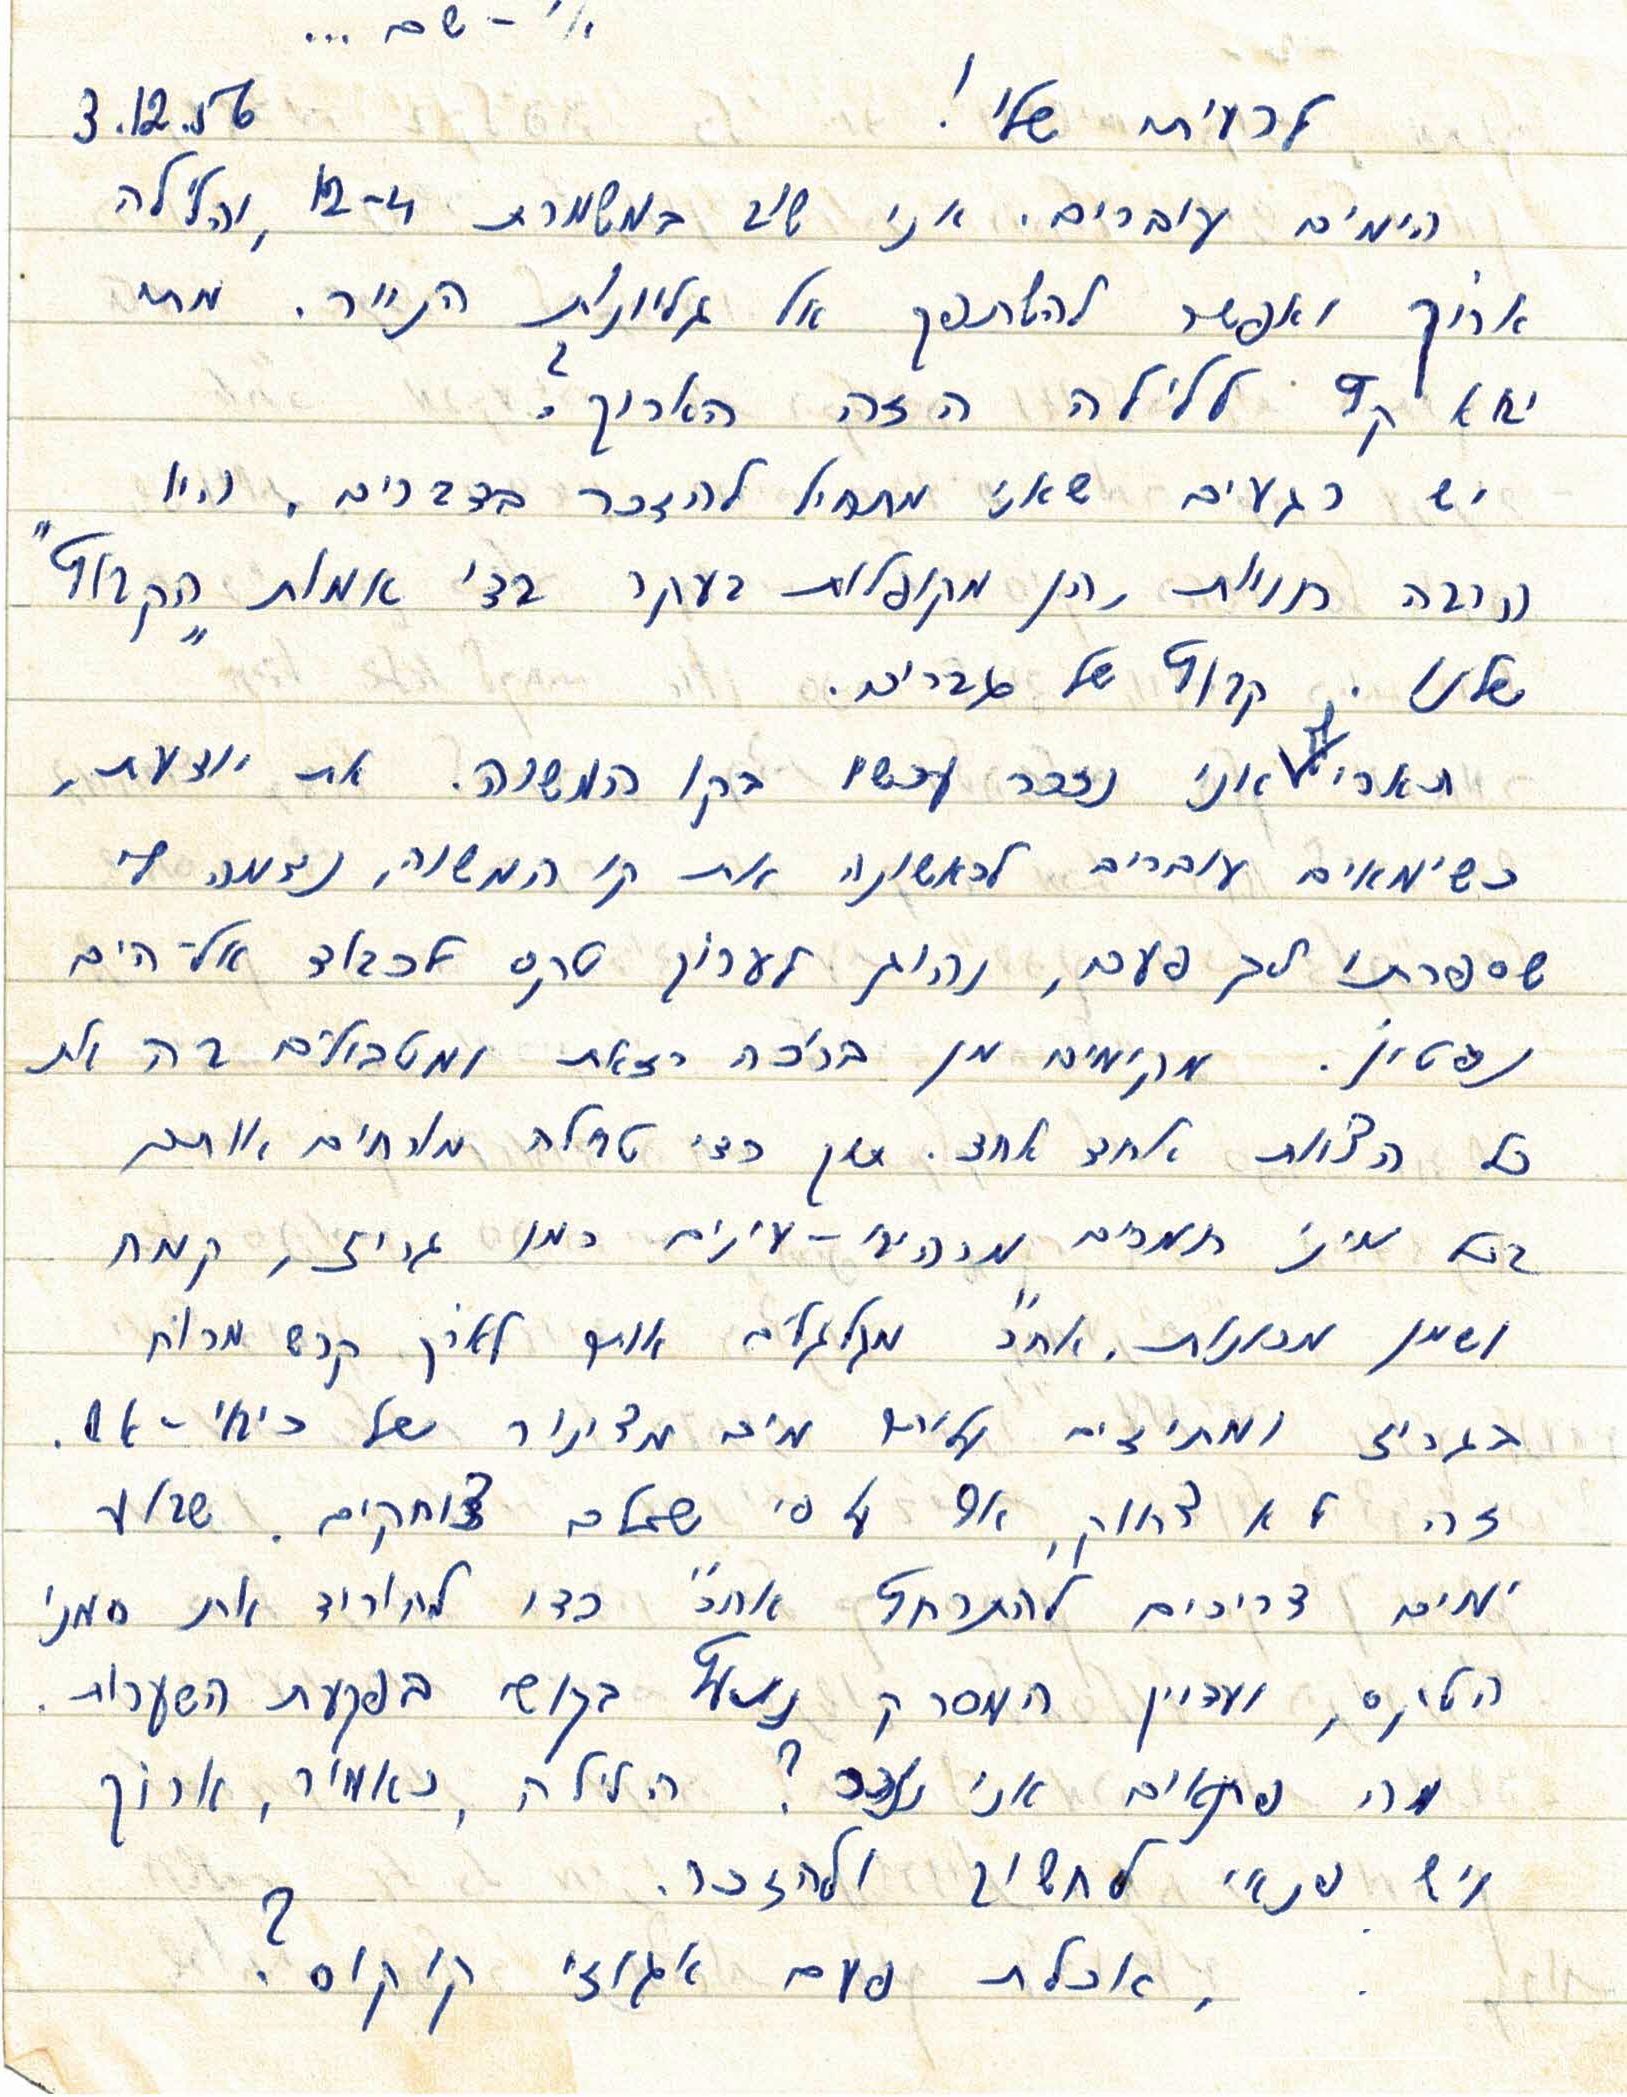 אי-שם ...
לרעיה שלי!
3.12.56
הימים עוברים. אני שוב במשמרת 12-4, והלילה
ארוך ואפשר להשתפך אל גליונות הנייר. מתי
יבא קץ ללילה הזה הארוך?
יש רגעים שאני מתחיל להזכר בדברים. היו
הרבה חוויות, והן מקופלות בעקר בד' אמות "הקבוץ"
שלנו. קבוץ של גברים.
תארי אני נזכר עכשו בקו המשוה. את יודעת,
כשימאים עוברים לראשונה את קו המשוה, נדמה לי
שספרתי לך פעם, נהוג לערוך טקס לכבוד אל-הים
נפטון. מקימים מין בריכה כזאת ומטבילים בה את
כל הצוות אחד אחד. אך כדי טבילה מורחים אותם
בכל מיני חמרים מרהיבי-עינים כמו גריז, קמח
ושמן מכונות. אח"כ מגלגלים אותם לאורך קרש מרוח
בגריז ומתיזים עליהם מים מצינור של כיבוי-אש.
זה לא צחוק, אף על פי שכולם צוחקים. שבוע
ימים צריכים להתרחץ אח"כ כדי להוריד את סמני
הטקס, ועדיין המסרק נעוץ בקושי בפקעת השערות.
מה פתאום אני נזכר? הלילה, כאמור, ארוך
ויש פנאי לחשוב ולהזכר.
אכלת פעם אגוזי קוקוס?